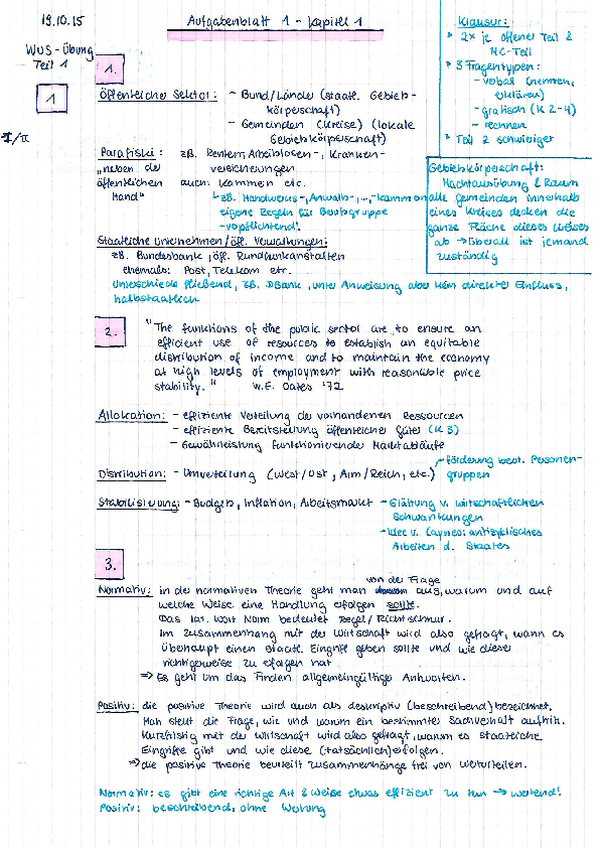 19.10.15
Aufgabenblatt 1 - Kapitel 1
WuS-Übung
Teil 1
1
I/II
Klausur:
2x je offener Teil &
MC-Teil
3 Fragentypen:
- verbal (nennen,
erklären)
- grafisch (K 2-4)
- rechnen
Teil 2 schwieriger
1.
Öffentlicher Sektor: - Bund/Länder (staatl. Gebiets-
körperschaft)
- Gemeinden (Kreise) (lokale
Gebietskörperschaft)
Parafiski: zB. Renten, Arbeitslosen-, Kranken-
"neben der versicherungen
öffentlichen auch: Kammern etc.
Hand"
↳ zB. Handwerks-, Anwalts-, ...-kammern
eigene Regeln für Berufsgruppe
-verpflichtend!
Gebietskörperschaft:
Machtausübung & Raum
alle gemeinden innerhalb
eines Kreises decken die
ganze Fläche dieses Kreises
ab → überall ist jemand
zuständig
Staatliche Unternehmen/öff. Verwaltungen:
zB. Bundesbank, öff. Rundfunkanstalten
ehemals: Post, Telekom etc.
Unterschiede fließend, zB. DBank, unter Anweisung aber kein direkter Einfluss,
halbstaatlich
2.
"The functions of the public sector are to ensure an
efficient use of resources to establish an equitable
distribution of income and to maintain the economy
at high levels of employment with reasonable price
stability." W.E. Oates '72
Allokation: - effiziente Verteilung der vorhandenen Ressourcen
- effiziente Bereitstellung öffentlicher Güter (K 3)
- Gewährleistung funktionierender Marktabläufe
Distribution: - Umverteilung (West/Ost, Arm/Reich, etc.)
Förderung best. Personen-
gruppen
Stabilisierung: - Budgets, Inflation, Arbeitsmarkt
- Glättung v. wirtschaftlichen
Schwankungen
- Idee v. Caynes: antizyklisches
Arbeiten d. Staates
3.
von der Frage
Normativ: in der normativen Theorie geht man aus, warum und auf
welche Weise eine Handlung erfolgen sollte.
Das lat. Wort Norm bedeutet Regel/Richtschnur.
Im Zusammenhang mit der Wirtschaft wird also gefragt, wann es
überhaupt einen staatl. Eingriff geben sollte und wie dieser
richtigerweise zu erfolgen hat
⇒ Es geht um das Finden allgemeingültiger Antworten.
Positiv: die positive Theorie wird auch als deskriptiv (beschreibend) bezeichnet.
Man stellt die Frage, wie und warum ein bestimmter Sachverhalt auftritt.
Kurzfristig mit der Wirtschaft wird also gefragt, warum es staatliche
Eingriffe gibt und wie diese (tatsächlich) erfolgen.
⇒ die positive Theorie beurteilt Zusammenhänge frei von Werturteilen.
Normativ: es gibt eine richtige Art & Weise etwas effizient zu tun → wertend!
Positiv: beschreibend, ohne Wertung